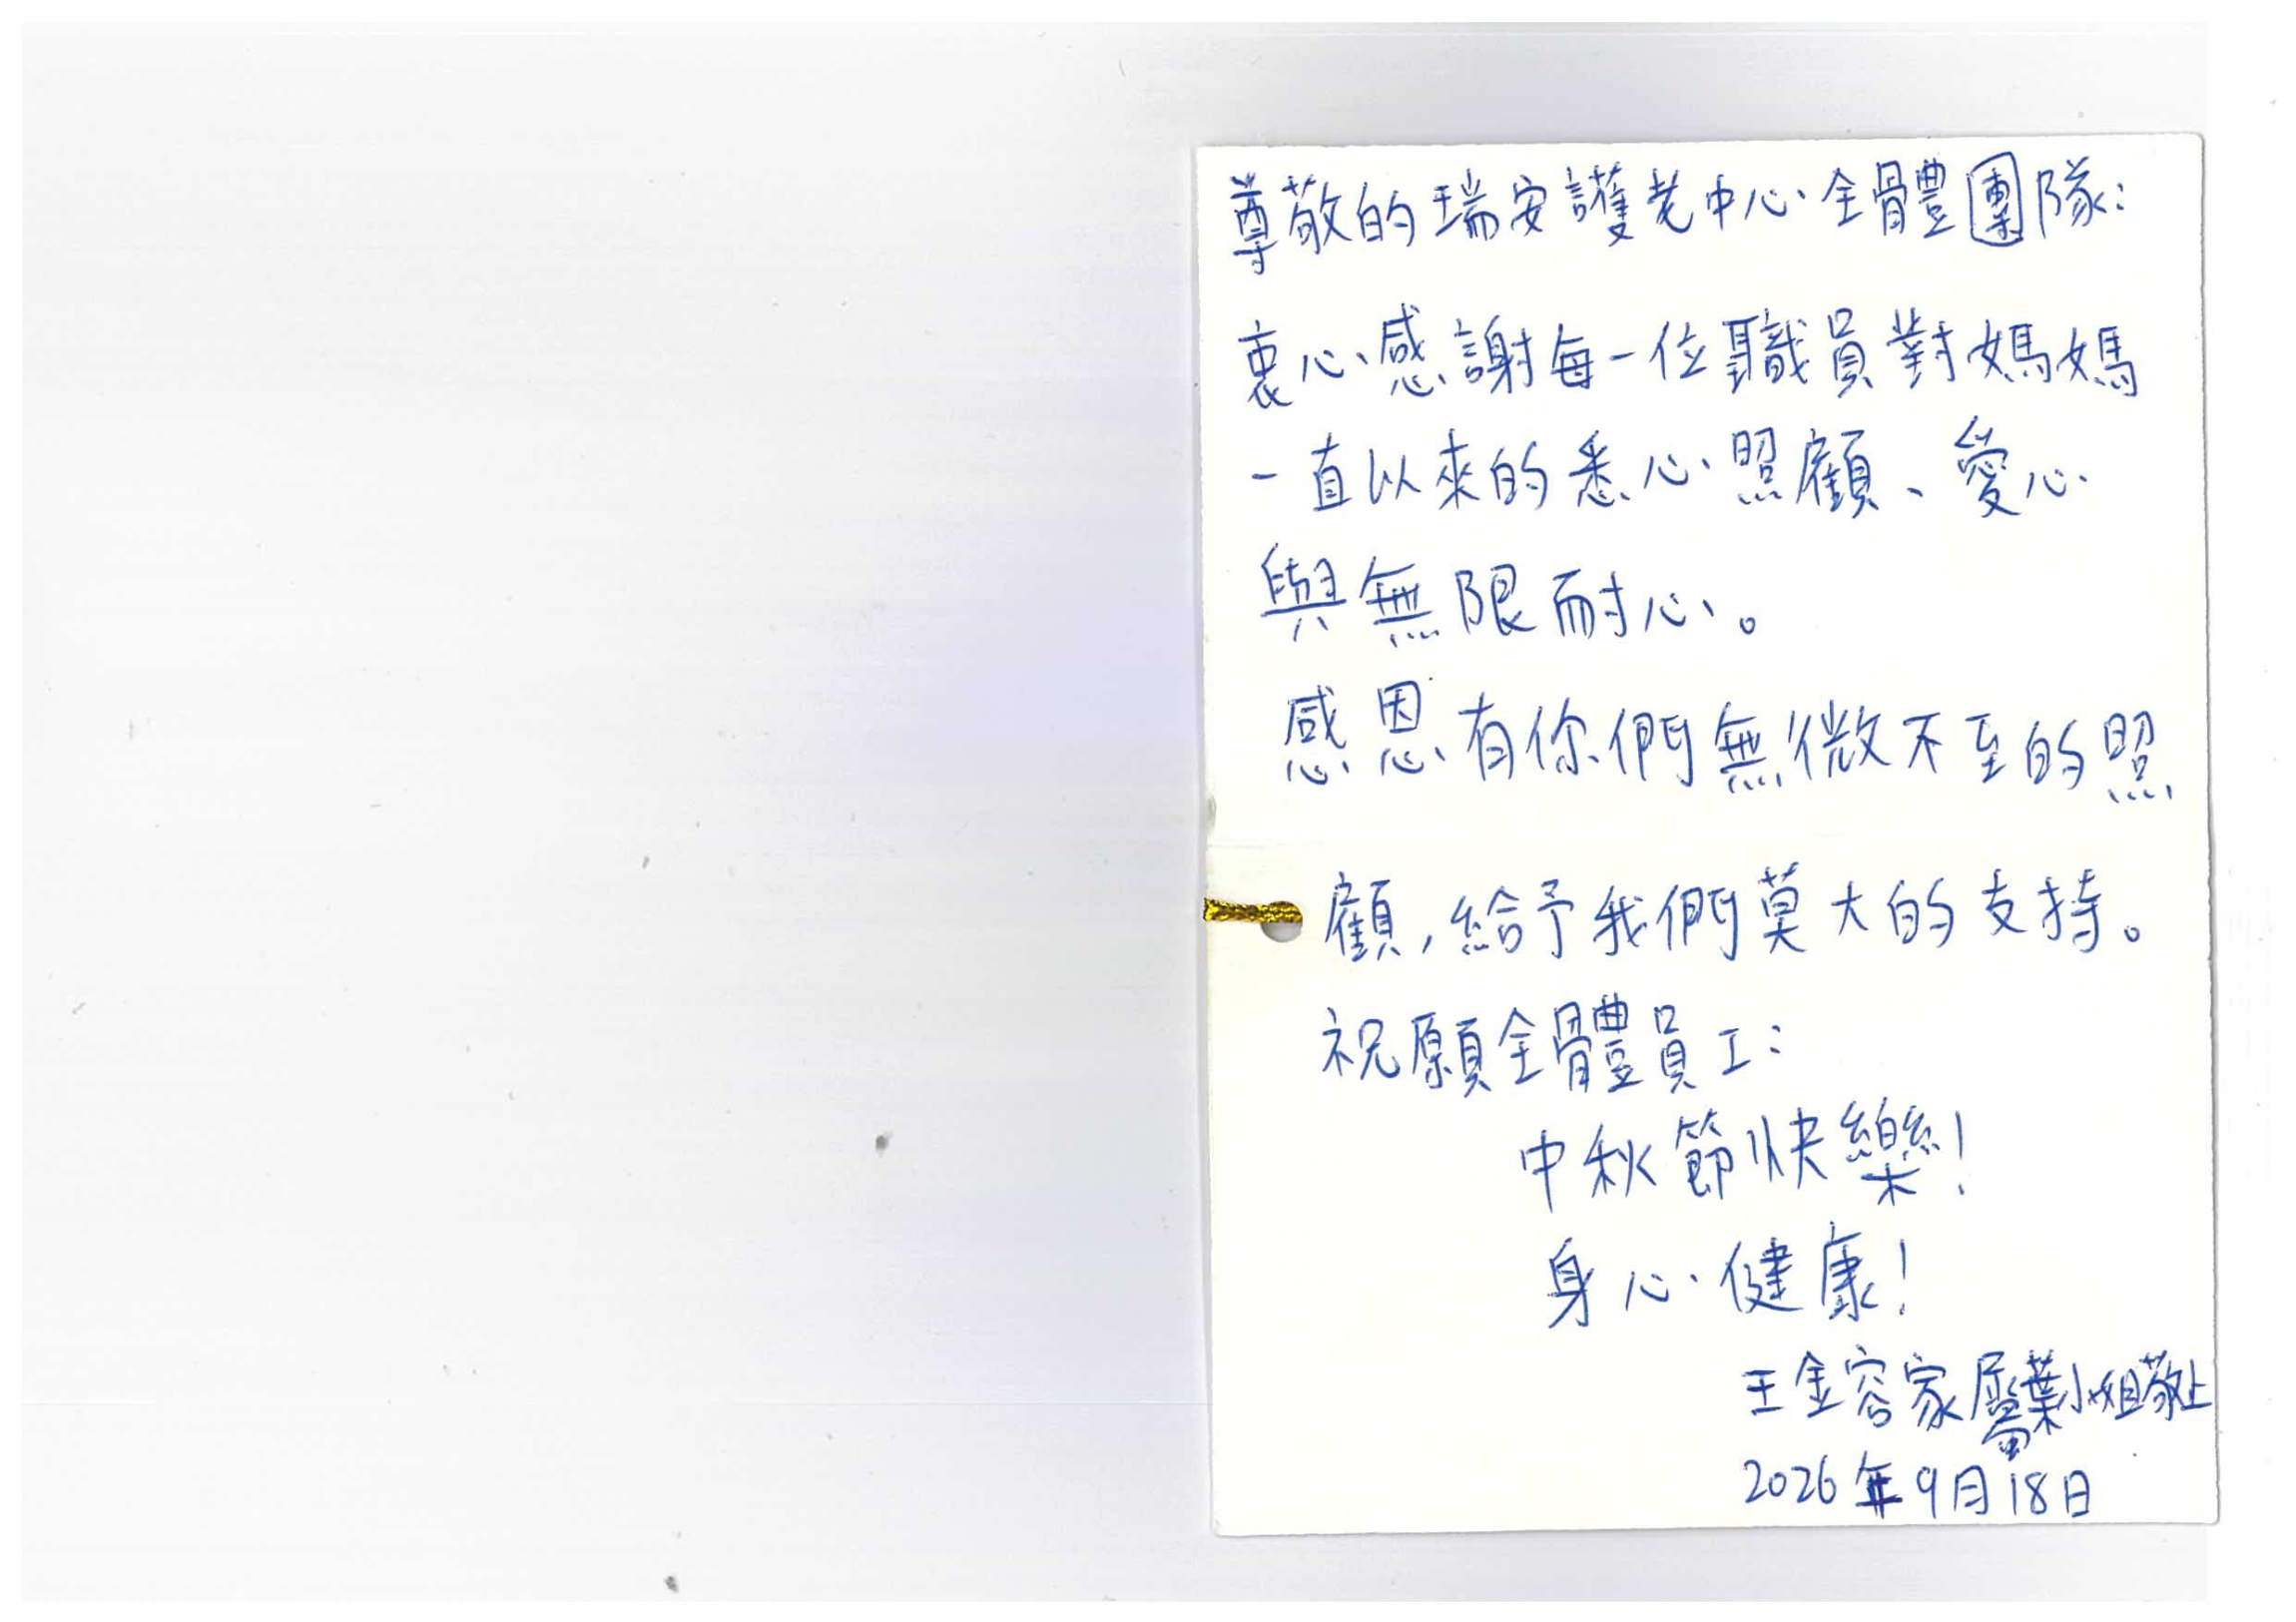 尊敬的瑞安護老中心全體團隊：
衷心感謝每一位職員對媽媽
一直以來的悉心照顧、愛心
與無限耐心。
感恩有你們無微不至的照
顧，給予我們莫大的支持。
祝願全體員工：
中秋節快樂！
身心健康！
王金容家屬葉小姐敬上
2026年9月18日